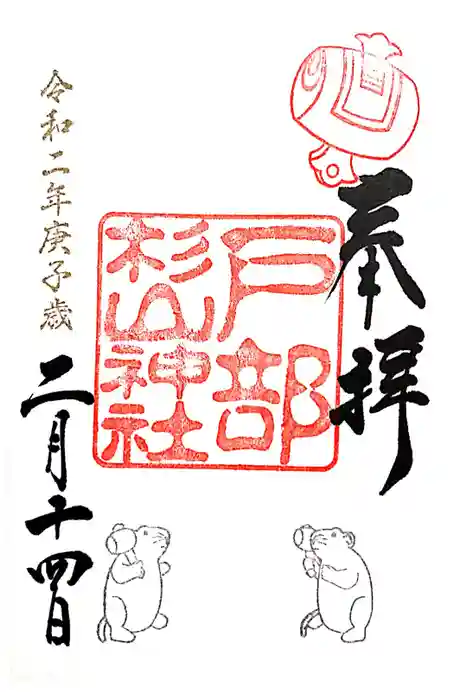 奉拝
戸部
杉山神社
令和二年庚子歳
二月十四日